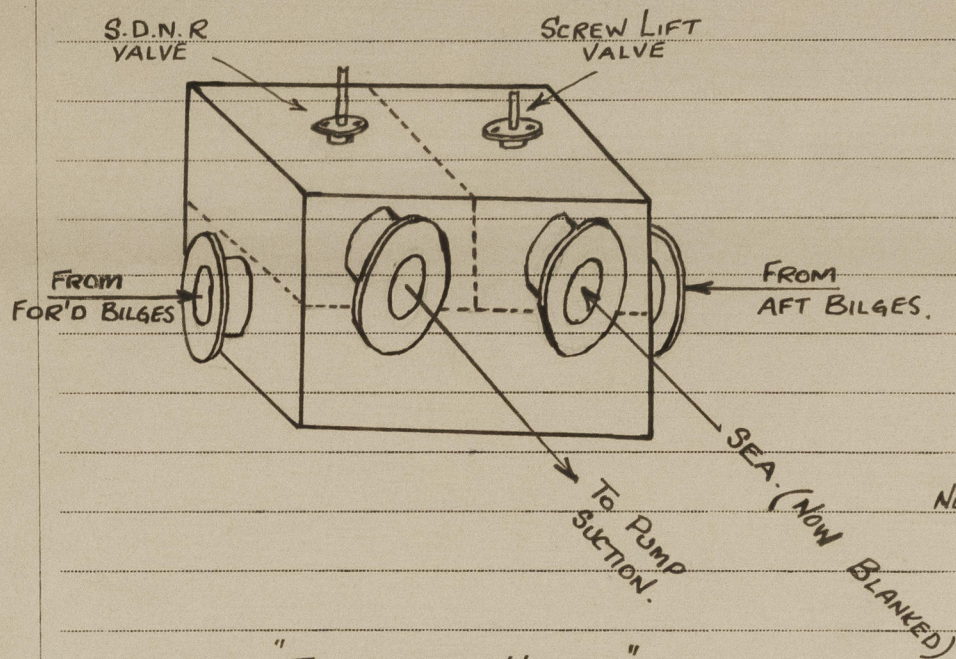 S.D.N.R
VALVE
SCREW LIFT
VALVE
FROM
FOR'D BILGES
FROM
AFT BILGES.
TO PUMP
SUCTION.
SEA. (NOW BLANKED)